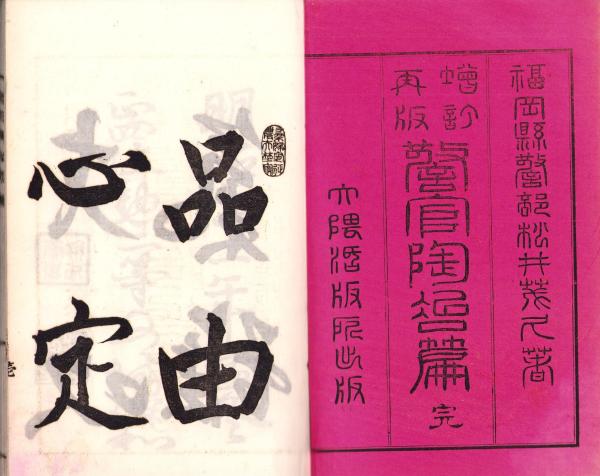 福岡縣警部松井茂久著
增訂
再版
警官陶冶篇 完
大隈活版所出版
品由
心定